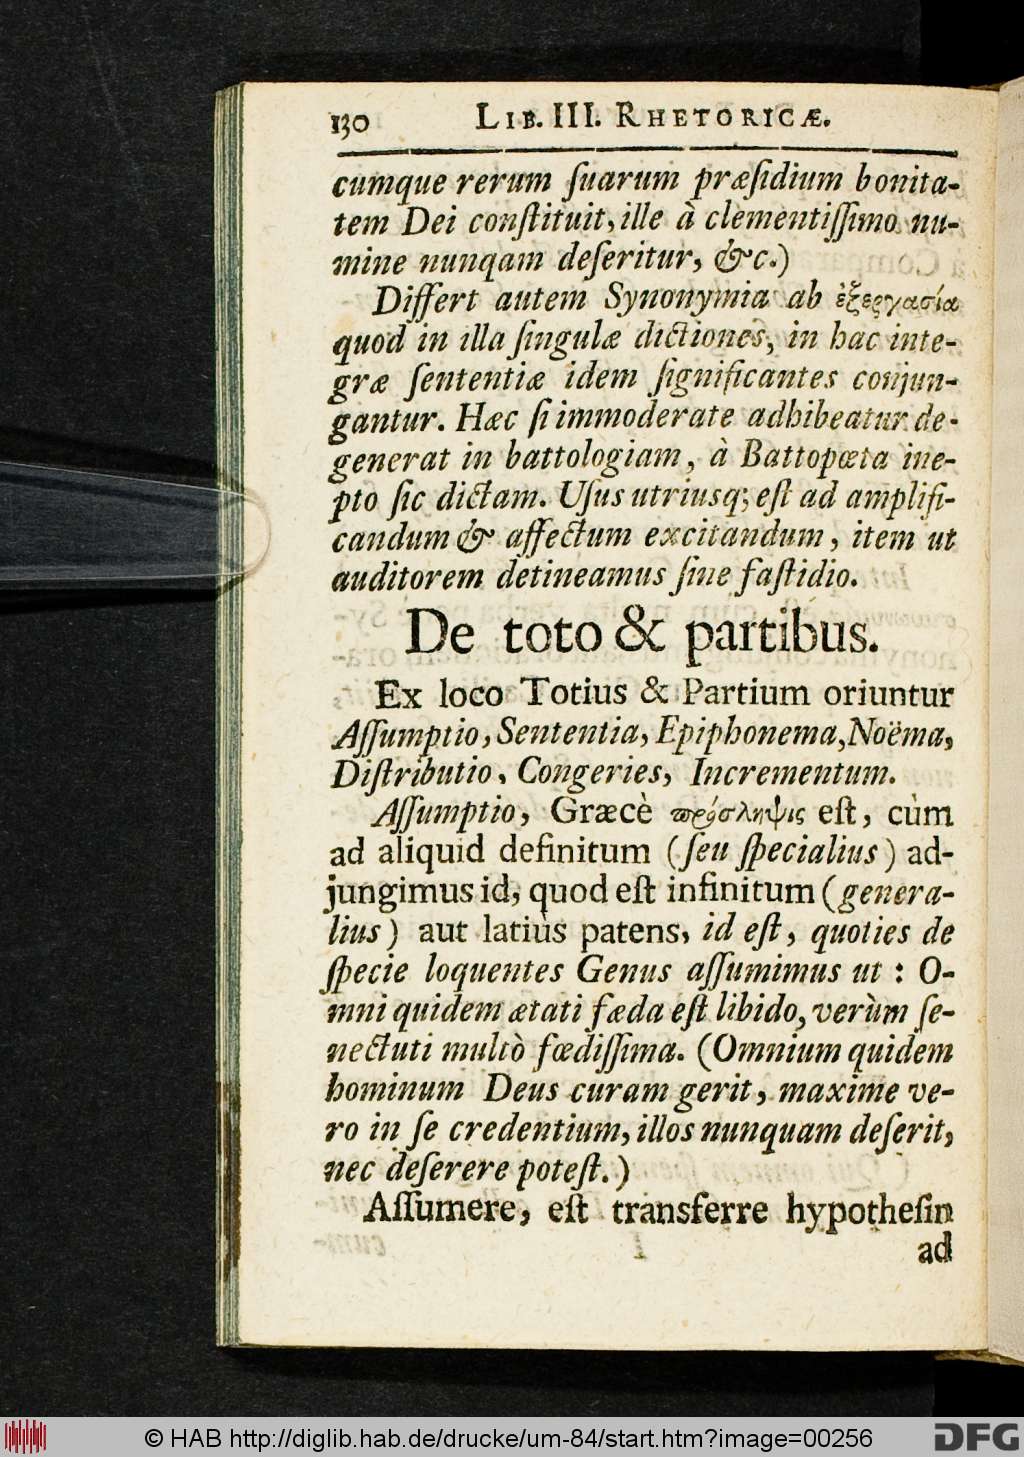 130 LIB. III. RHETORICÆ.
cumque rerum ſuarum præſidium bonita-
tem Dei conſtituit, ille à clementiſſimo nu-
mine nunqam deſeritur, &c.)
Differt autem Synonymia ab ἐξεργασία
quod in illa ſingulæ dictiones, in hac inte-
græ ſententiæ idem ſignificantes conjun-
gantur. Hæc ſi immoderate adhibeatur de-
generat in battologiam, à Battopœta ine-
pto ſic dictam. Uſus utriusq; eſt ad amplifi-
candum & affectum excitandum, item ut
auditorem detineamus ſine faſtidio.
De toto & partibus.
Ex loco Totius & Partium oriuntur
Aſſumptio, Sententia, Epiphonema, Noëma,
Diſtributio, Congeries, Incrementum.
Aſſumptio, Græcè πρόσληψις eſt, cùm
ad aliquid definitum (ſeu ſpecialius) ad-
jungimus id, quod eſt infinitum (genera-
lius) aut latiùs patens, id eſt, quoties de
ſpecie loquentes Genus aſſumimus ut : O-
mni quidem ætati fæda eſt libido, verùm ſe-
nectuti multò fœdiſſima. (Omnium quidem
hominum Deus curam gerit, maxime ve-
ro in ſe credentium, illos nunquam deſerit,
nec deſerere poteſt.)
Aſſumere, eſt transferre hypotheſin
ad
© HAB http://diglib.hab.de/drucke/um-84/start.htm?image=00256
DFG